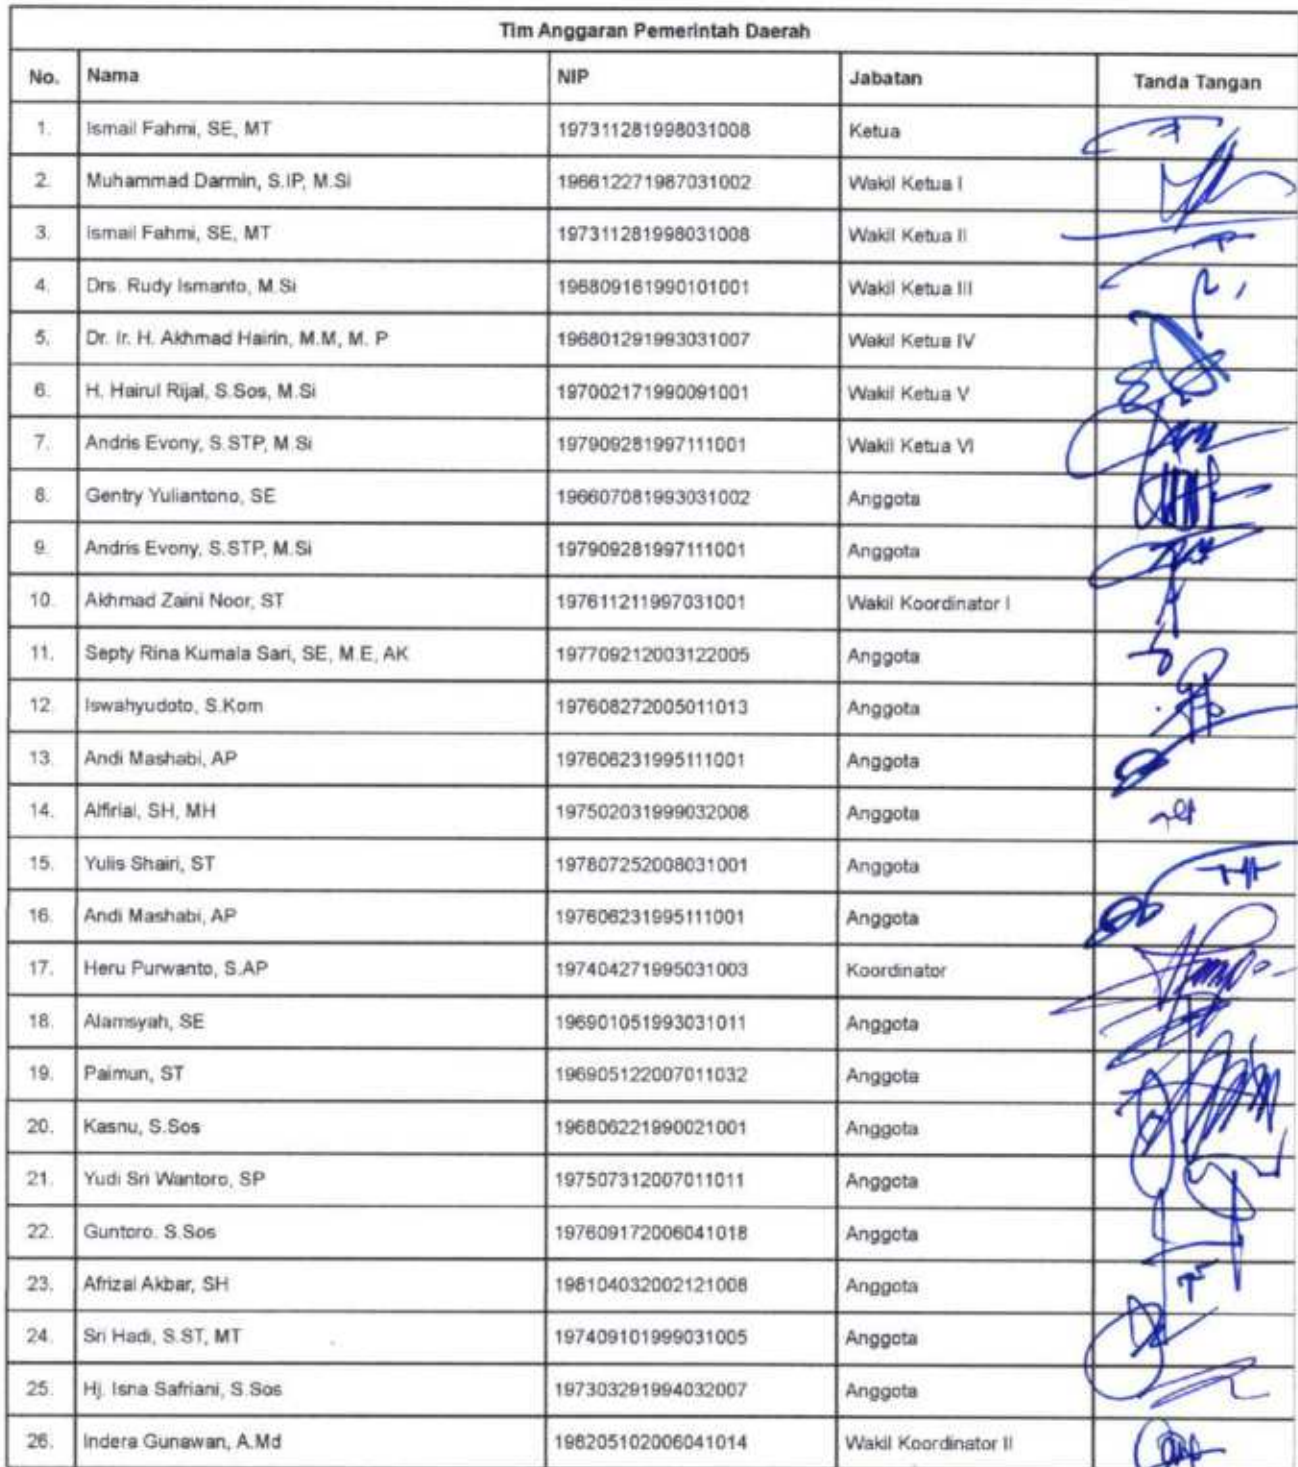 Tim Anggaran Pemerintah Daerah
No. Nama NIP Jabatan Tanda Tangan
1. Ismail Fahmi, SE, MT 197311281998031008 Ketua
2. Muhammad Darmin, S.IP, M.Si 196612271987031002 Wakil Ketua I
3. Ismail Fahmi, SE, MT 197311281998031008 Wakil Ketua II
4. Drs. Rudy Ismanto, M.Si 196809161990101001 Wakil Ketua III
5. Dr. Ir. H. Akhmad Hairin, M.M, M. P 196801291993031007 Wakil Ketua IV
6. H. Hairul Rijal, S.Sos, M.Si 197002171990091001 Wakil Ketua V
7. Andris Evony, S.STP, M.Si 197909281997111001 Wakil Ketua VI
8. Gentry Yuliantono, SE 196607081993031002 Anggota
9. Andris Evony, S.STP, M.Si 197909281997111001 Anggota
10. Akhmad Zaini Noor, ST 197611211997031001 Wakil Koordinator I
11. Septy Rina Kumala Sari, SE, M.E, AK 197709212003122005 Anggota
12. Iswahyudoto, S.Kom 197608272005011013 Anggota
13. Andi Mashabi, AP 197606231995111001 Anggota
14. Alfirial, SH, MH 197502031999032008 Anggota
15. Yulis Shairi, ST 197807252008031001 Anggota
16. Andi Mashabi, AP 197606231995111001 Anggota
17. Heru Purwanto, S.AP 197404271995031003 Koordinator
18. Alamsyah, SE 196901051993031011 Anggota
19. Paimun, ST 196905122007011032 Anggota
20. Kasnu, S.Sos 196806221990021001 Anggota
21. Yudi Sri Wantoro, SP 197507312007011011 Anggota
22. Guntoro. S.Sos 197609172006041018 Anggota
23. Afrizal Akbar, SH 198104032002121008 Anggota
24. Sri Hadi, S.ST, MT 197409101999031005 Anggota
25. Hj. Isna Safriani, S.Sos 197303291994032007 Anggota
26. Indera Gunawan, A.Md 198205102006041014 Wakil Koordinator II